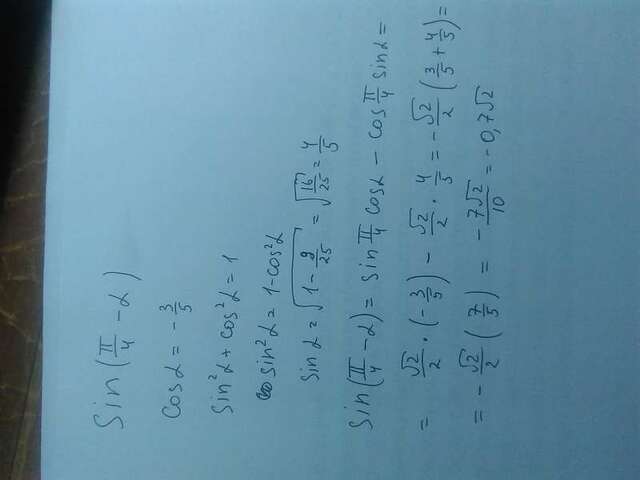 Sin(π/4 - α)
cosα = -3/5
sin²α + cos²α = 1
sin²α = 1 - cos²α
sinα = √(1 - 9/25) = √(16/25) = 4/5
sin(π/4 - α) = sin π/4 cosα - cos π/4 sinα =
= √2/2 · (-3/5) - √2/2 · 4/5 = -√2/2 (3/5 + 4/5) =
= -√2/2 (7/5) = -7√2/10 = -0,7√2